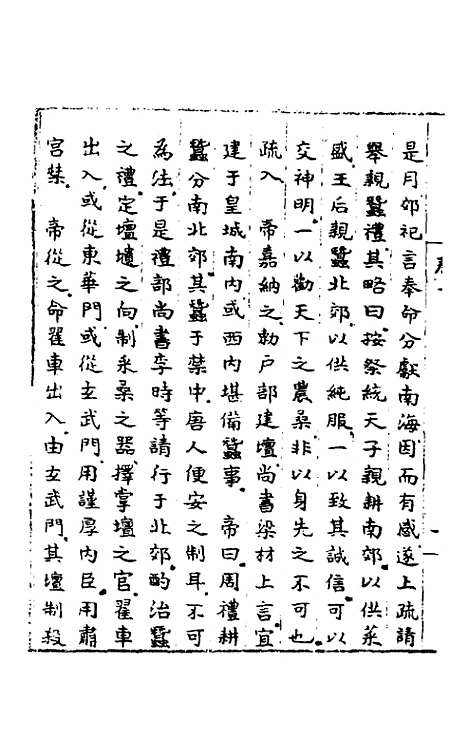 是月郊祀言奉命分獻南海因而有感遂上疏請
舉親蠶禮其略曰按祭統天子親耕南郊以供粢
盛王后親蠶北郊以供純服一以致其誠信可以
交神明一以勸天下之農桑非以身先之不可也
疏入　帝嘉納之勅戶部建壇尚書梁材上言宜
建于皇城南內或西內堪備蠶事　帝曰周禮耕
蠶分南北郊其蠶于禁中唐人便安之制耳不可
為法于是禮部尚書李時等請行于北郊酌治蠶
之禮定壇壝之向制采桑之器擇掌壇之官翟車
出入或從東華門或從玄武門用謹厚內臣用肅
宮禁　帝從之命翟車出入由玄武門其壇制殺